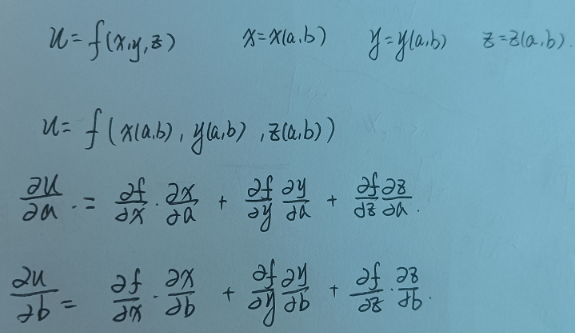 u = f(x,y,z) x = x(a,b) y = y(a,b) z = z(a,b).
u = f(x(a,b), y(a,b), z(a,b))
∂u/∂a = ∂f/∂x · ∂x/∂a + ∂f/∂y ∂y/∂a + ∂f/∂z ∂z/∂a.
∂u/∂b = ∂f/∂x · ∂x/∂b + ∂f/∂y ∂y/∂b + ∂f/∂z · ∂z/∂b.